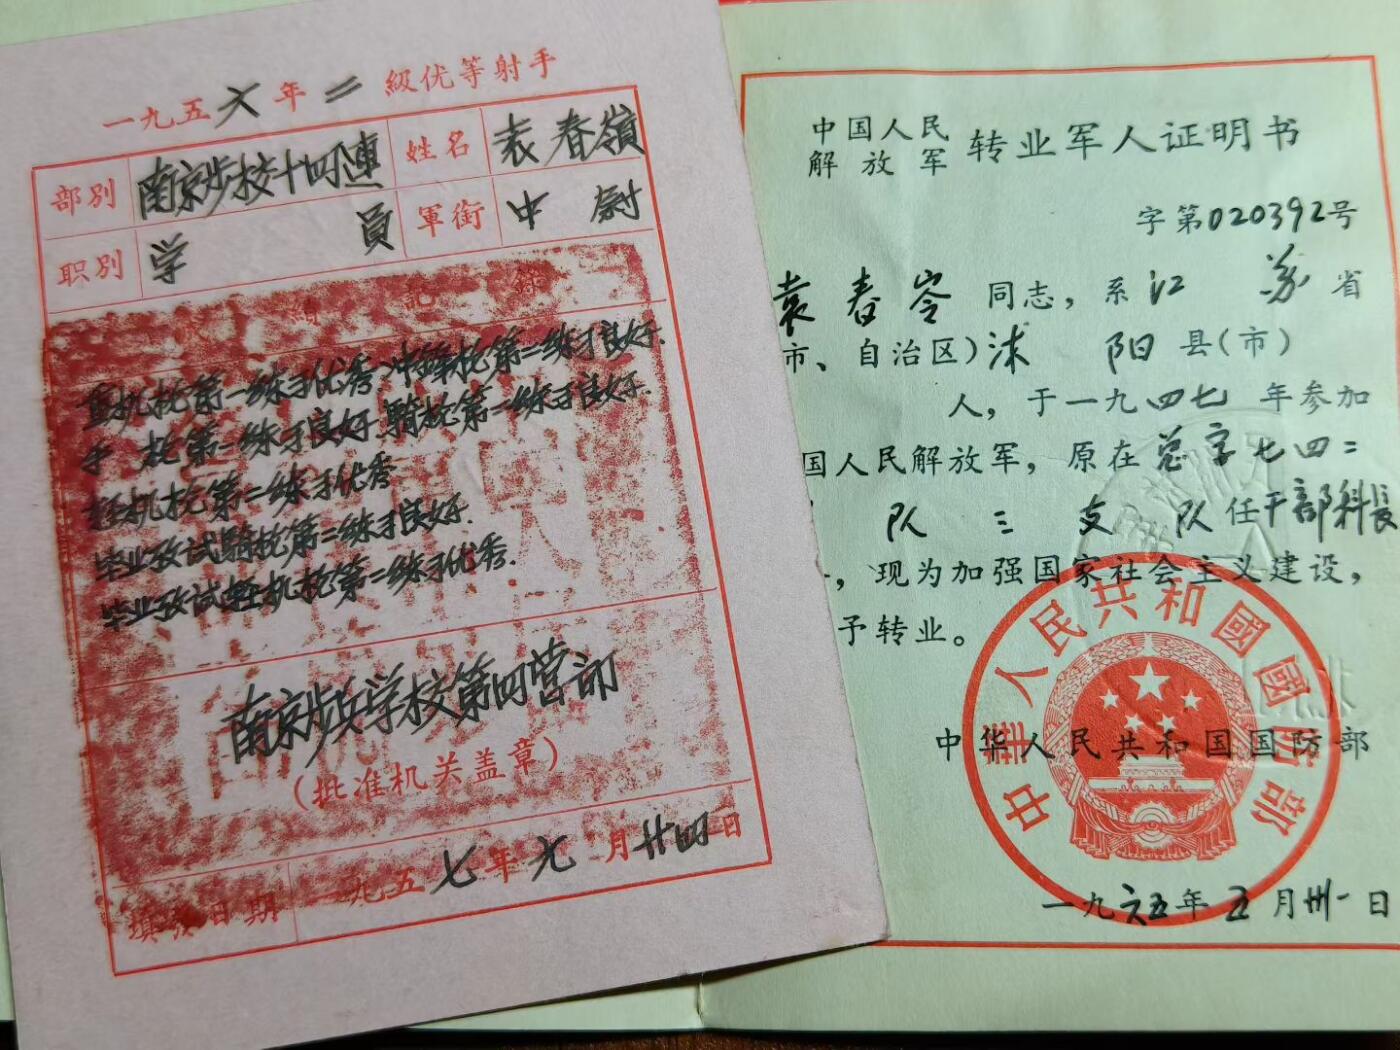 一九五六年二級优等射手
部別 南京步校十四連 姓名 袁春嶺
职別 学員 軍銜 中尉
成績記錄
重机枪第一练习优秀.冲锋枪第二练习良好.
手枪第一练习良好.騎枪第一练习良好.
轻机枪第二练习优秀
毕业考试騎枪第二练习良好.
毕业考试轻机枪第二练习优秀.
南京步兵学校第四营部
(批准机关盖章)
填發日期 一九五七年九月廿四日
中国人民
解放军 转业军人证明书
字第020392号
袁春岺同志，系江苏省
市、自治区)沭阳县(市)
人，于一九四七年参加
国人民解放军，原在总字七四二
队三支队任干部科長
，现为加强国家社会主义建设，
予转业。
中华人民共和国国防部
中華人民共和國國防部
一九六五年五月卅一日